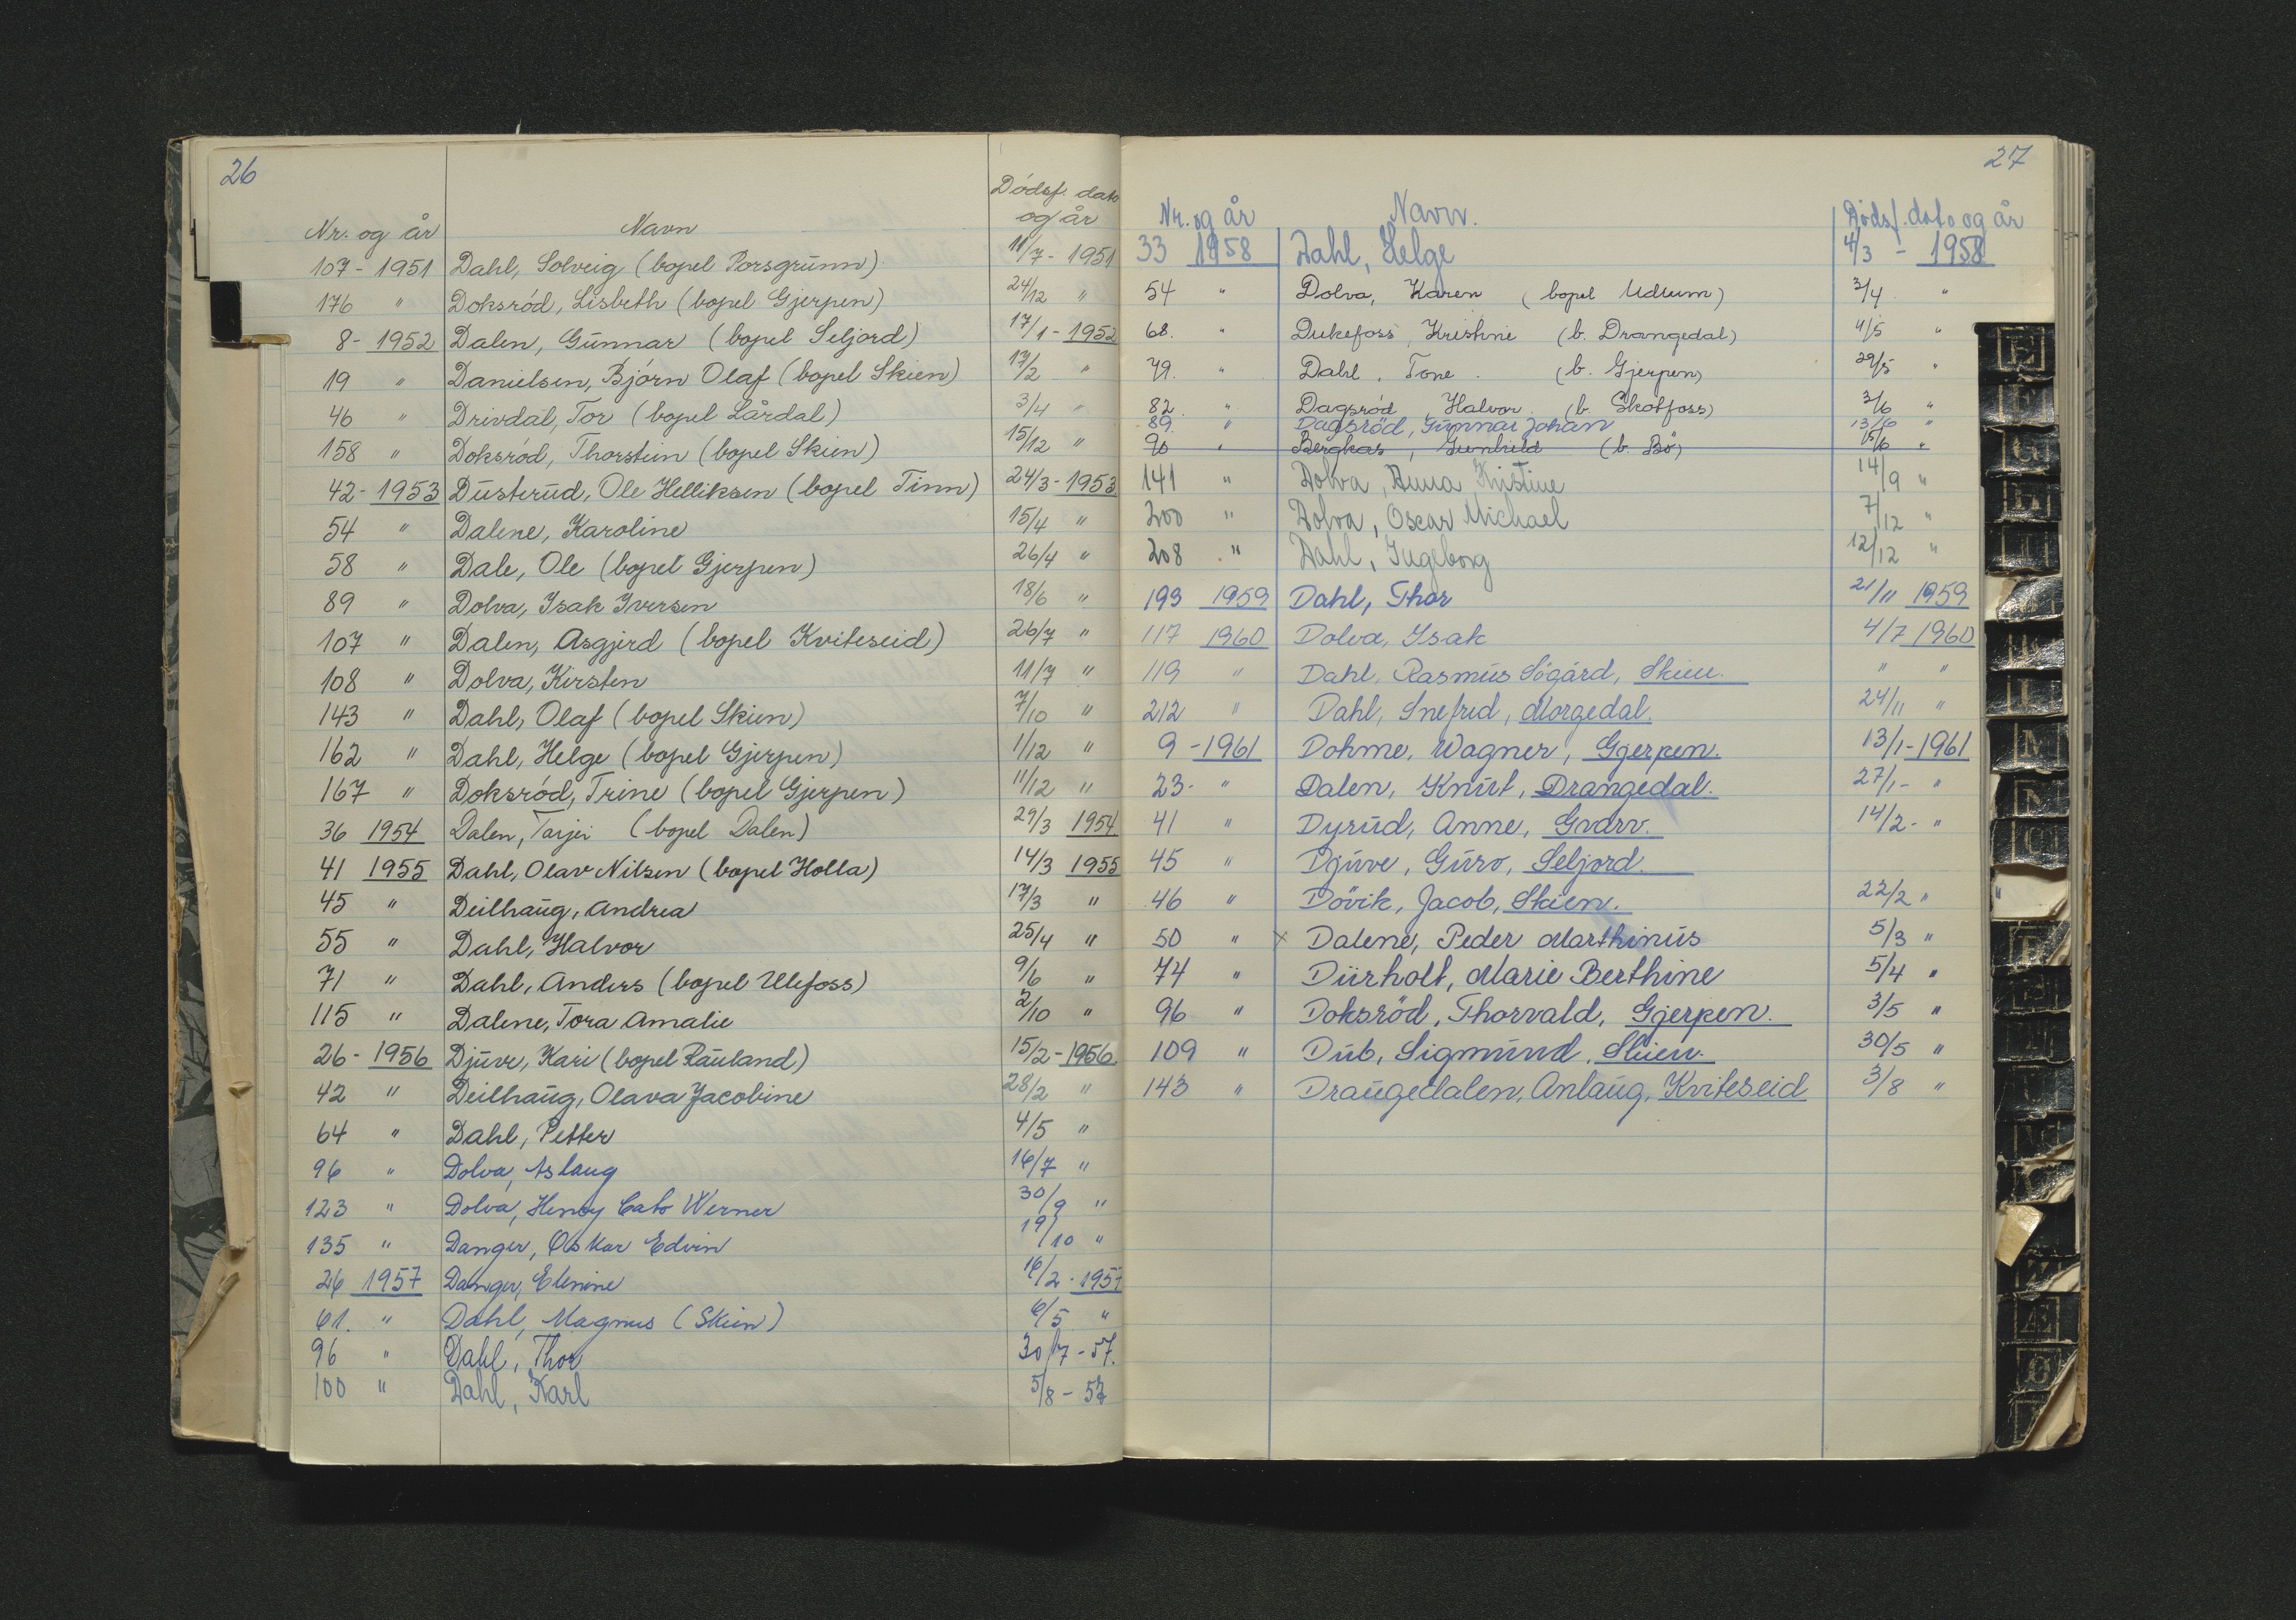 26
Dödsf. dato
Nr. og år Navn og år
107 - 1951 Dahl, Solveig (bopel Porsgrunn) 11/7 - 1951
176 " Doksröd, Lisbeth (bopel Gjerpen) 24/12 "
8 - 1952 Dalen, Gunnar (bopel Seljord) 17/1 - 1952
19 " Danielsen, Björn Olaf (bopel Skien) 17/2 "
46 " Drivdal, Tor (bopel Lårdal) 3/4 "
158 " Doksröd, Thorstein (bopel Skien) 15/12 "
42 - 1953 Dusterud, Ole Helliksen (bopel Tinn) 24/3 - 1953
54 " Dalene, Karoline 15/4 "
58 " Dale, Ole (bopel Gjerpen) 26/4 "
89 " Dolva, Isak Iversen 18/6 "
107 " Dalen, Asgjerd (bopel Kviteseid) 26/7 "
108 " Dolva, Kirsten 11/7 "
143 " Dahl, Olaf (bopel Skien) 7/10 "
162 " Dahl, Helge (bopel Gjerpen) 1/12 "
167 " Doksröd, Trine (bopel Gjerpen) 11/12 "
36 1954 Dalen, Tarjei (bopel Dalen) 29/3 1954
41 1955 Dahl, Olav Nilsen (bopel Holla) 14/3 1955
45 " Deilhaug, Andrea 17/3 "
55 " Dahl, Halvor 25/4 "
71 " Dahl, Anders (bopel Ulefoss) 9/6 "
115 " Dalene, Tora Amalie 2/10 "
26 - 1956 Djuve, Kari (bopel Rauland) 15/2 - 1956
42 " Deilhaug, Olava Jacobine 28/2 "
64 " Dahl, Petter 4/5 "
96 " Dolva, Aslaug 16/7 "
123 " Dolva, Henry Cato Werner 30/9 "
135 " Danger, Oskar Edvin 19/10 "
26 1957 Danger, Elenine 16/2 - 1957
61. " Dahl, Magnus (Skien) 6/5 "
96 " Dahl, Thor 30/7 - 57.
100 " Dahl, Karl 5/8 - 57
27
Nr. og år Navn. Dødsf. dato og år
33 1958 Dahl, Helge 4/3 - 1958
54 " Dolva, Karen (bopel Udlum) 3/4 "
68. " Dukefoss, Kristine (b. Drangedal) 4/5 "
79. " Dahl, Tone. (b. Gjerpen) 29/5 "
82. " Dagsröd, Halvor. (b. Skotfoss) 3/6 "
89. " Dagsröd, Gunnar Johan 13/6 "
90 " Bergkas, Gunhild (b. Bö) 15/6 "
141 " Dolva, Anna Kristine 14/9 "
200 " Dolva, Oscar Michael 7/12 "
208 " Dahl, Ingeborg 12/12 "
193 1959 Dahl, Thor 21/11 1959
117 1960 Dolva, Isak 4/7 1960
119 " Dahl, Rasmus Sögård, Skien. " "
212 " Dahl, Snefrid, Morgedal. 24/11 "
9 - 1961 Dohme, Wagner, Gjerpen. 13/1 - 1961
23 - " Dalen, Knut, Drangedal. 27/1 - "
41 " Dyrud, Anne, Gvarv. 14/2 - "
45 " Djuve, Guro, Seljord.
46 " Dövik, Jacob, Skien. 22/2 "
50 " x Dalene, Peder Marthinus 5/3 "
74 " Dürholt, Marie Berthine 5/4 "
96 " Doksröd, Thorvald, Gjerpen. 3/5 "
109 " Dub, Sigmund, Skien. 30/5 "
143 " Draugedalen, Anlaug, Kviteseid 3/8 "
E
F
G
H
I
L
M
N
O
Æ
Ø